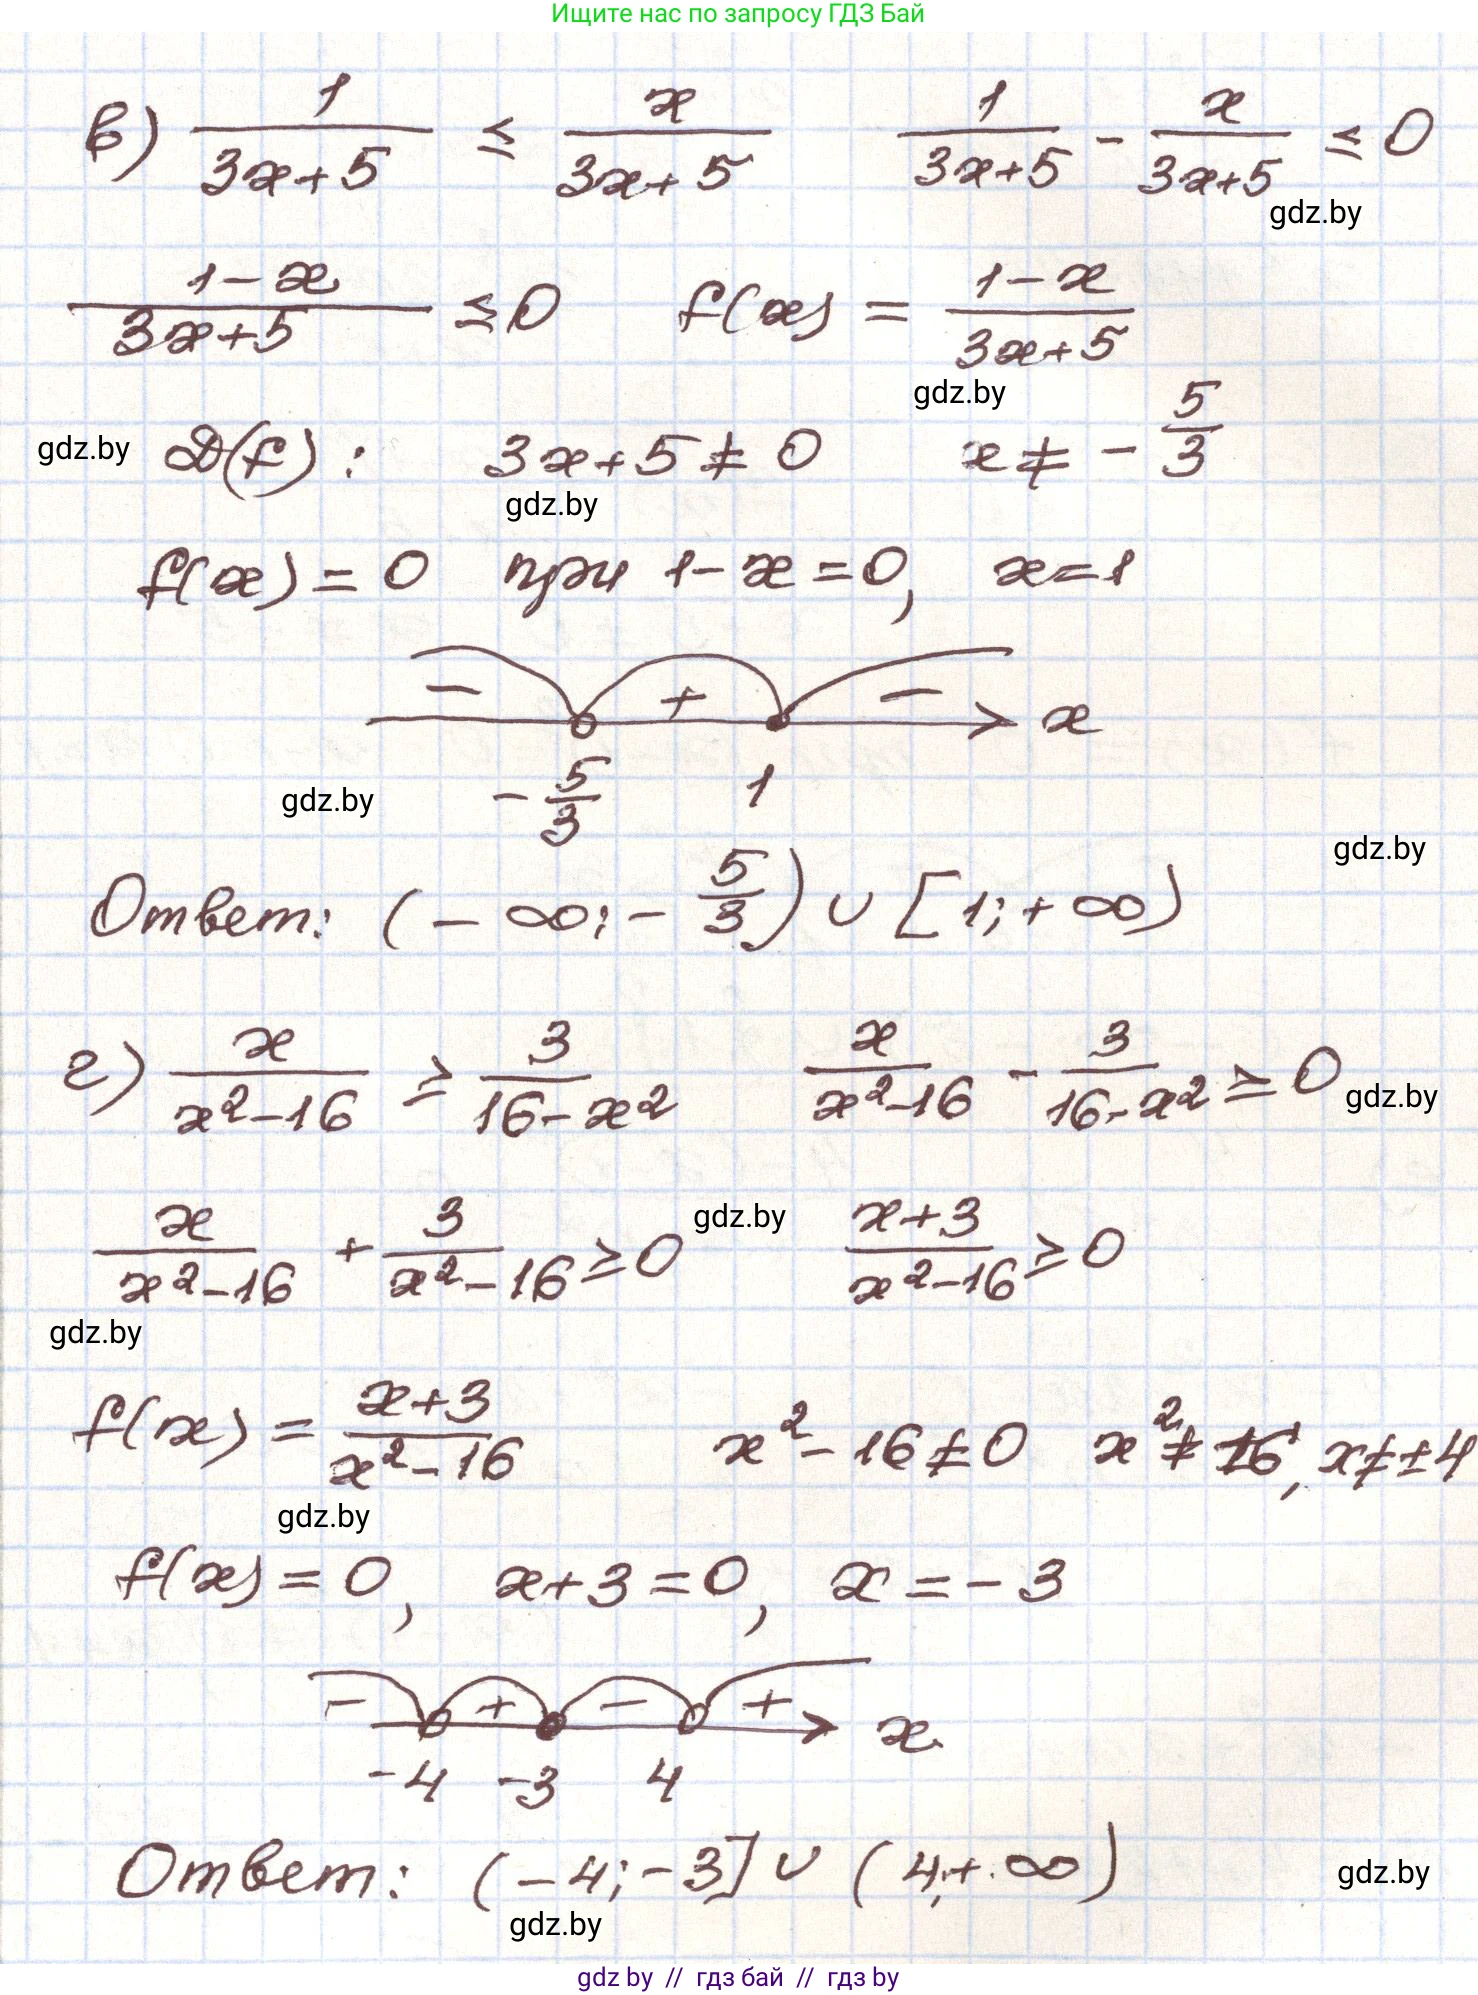 Ищите нас по запросу ГДЗ Бай
в) 1/(3x+5) ≤ x/(3x+5)   1/(3x+5) - x/(3x+5) ≤ 0
gdz.by
(1-x)/(3x+5) ≤ 0   f(x) = (1-x)/(3x+5)
gdz.by
gdz.by D(f): 3x+5 ≠ 0   x ≠ -5/3
gdz.by
f(x) = 0 при 1-x=0, x=1
- + - x
gdz.by -5/3 1
gdz.by
Ответ: (-∞; -5/3) ∪ [1; +∞)
г) x/(x²-16) ≥ 3/(16-x²)   x/(x²-16) - 3/(16-x²) ≥ 0 gdz.by
x/(x²-16) + 3/(x²-16) ≥ 0 gdz.by (x+3)/(x²-16) ≥ 0
gdz.by
f(x) = (x+3)/(x²-16)   x²-16 ≠ 0   x² ≠ 16, x ≠ ±4
gdz.by
f(x) = 0, x+3=0, x = -3
- + - + x
-4 -3 4
Ответ: (-4; -3] ∪ (4; +∞) gdz.by
gdz.by
gdz by // гдз бай // гдз by